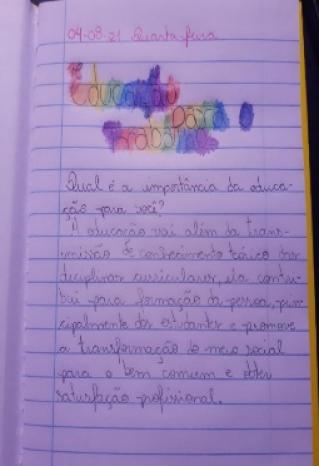 04-08-21 Quarta-feira
Educação
para o
trabalho
Qual é a importância da educa-
ção para você?
A educação vai além da trans-
missão de conhecimento teórico das
diciplinas curriculares, ela contri-
bui para formação da pessoa, prin-
cipalmente dos estudantes e promove
a transformação do meio social
para o bem comum e obter
satisfação profissional.